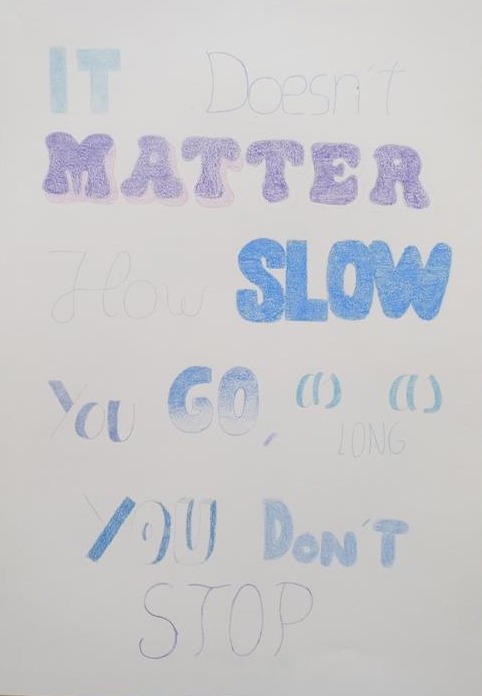 IT Doesn't
MATTER
How SLOW
YOU GO,
LONG
YOU DON'T
STOP